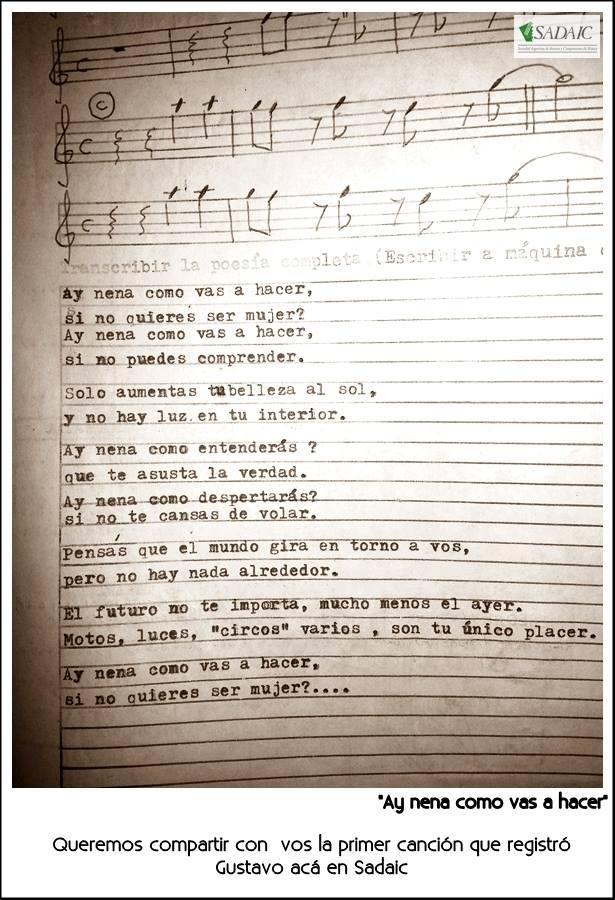 SADAIC
Sociedad Argentina de Autores y Compositores de Música
C
Transcribir la poesía completa (Escribir a máquina
Ay nena como vas a hacer,
si no quieres ser mujer?
Ay nena como vas a hacer,
si no puedes comprender.
Solo aumentas tubelleza al sol,
y no hay luz.en tu interior.
Ay nena como entenderás ?
que te asusta la verdad.
Ay nena como despertarás?
si no te cansas de volar.
Pensás que el mundo gira en torno a vos,
pero no hay nada alrededor.
El futuro no te importa, mucho menos el ayer.
Motos, luces, "circos" varios , son tu único placer.
Ay nena como vas a hacer,
si no quieres ser mujer?....
"Ay nena como vas a hacer"
Queremos compartir con vos la primer canción que registró
Gustavo acá en Sadaic